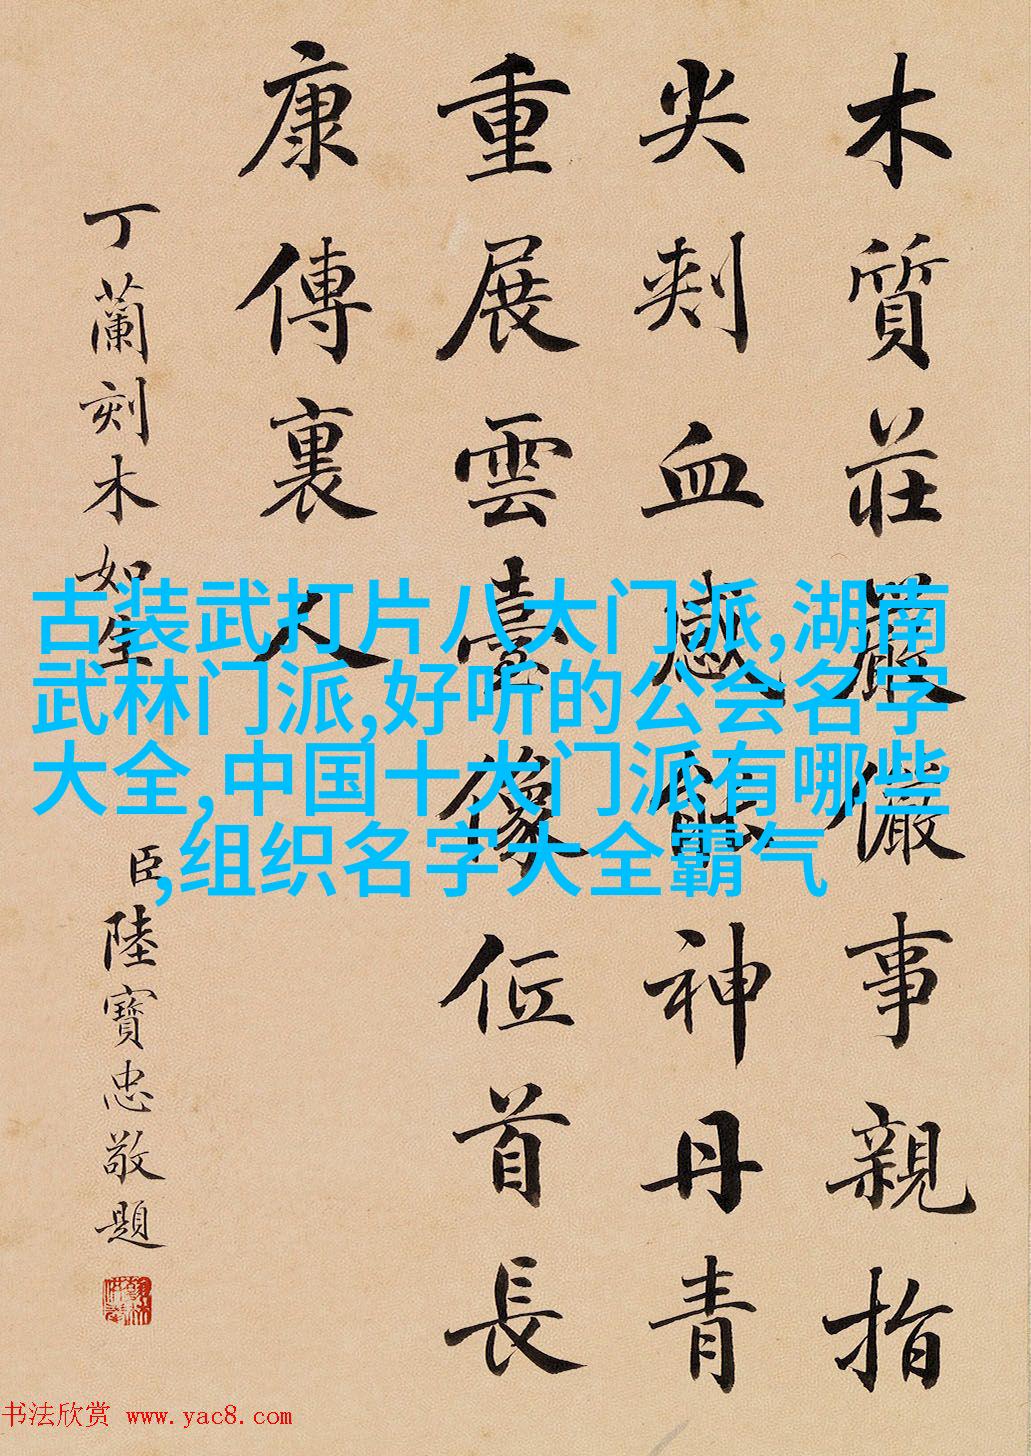 木質莊嚴儼事親指
尖刺血感能神丹青
重展雲臺像位首長
康傳裏人
丁蘭刻木如生
臣陸寶忠敬題
古装武打片八大门派,湖南
武林门派,好听的公会名字
大全,中国十大门派有哪些
,组织名字大全霸气
书法欣赏 www.yac8.com